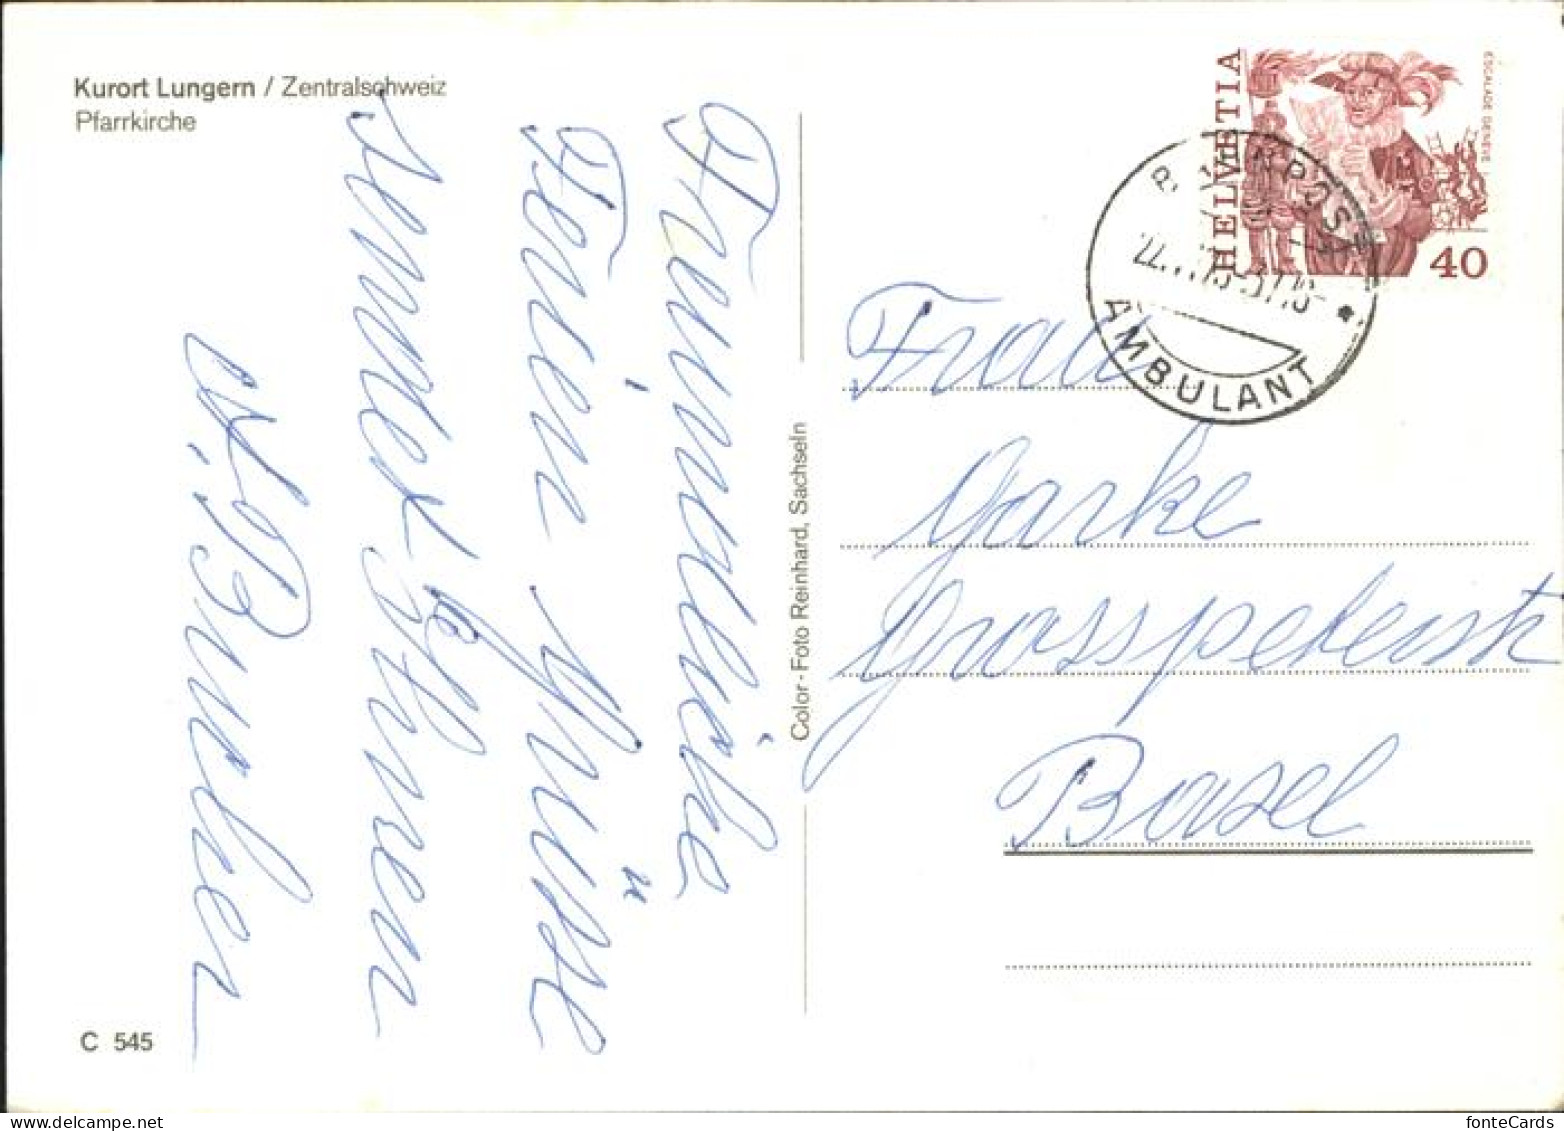 Kurort Lungern / Zentralschweiz
Pfarrkirche
HELVETIA
ESCALADE GENÈVE
40
BAHNPOST
AMBULANT
Freundliche
Ferien Grüsse
sendet
Ihnen
Bucher
Color-Foto Reinhard, Sachseln
Frau
Garke
Grosspeterstr
Basel
C 545
fonteCards